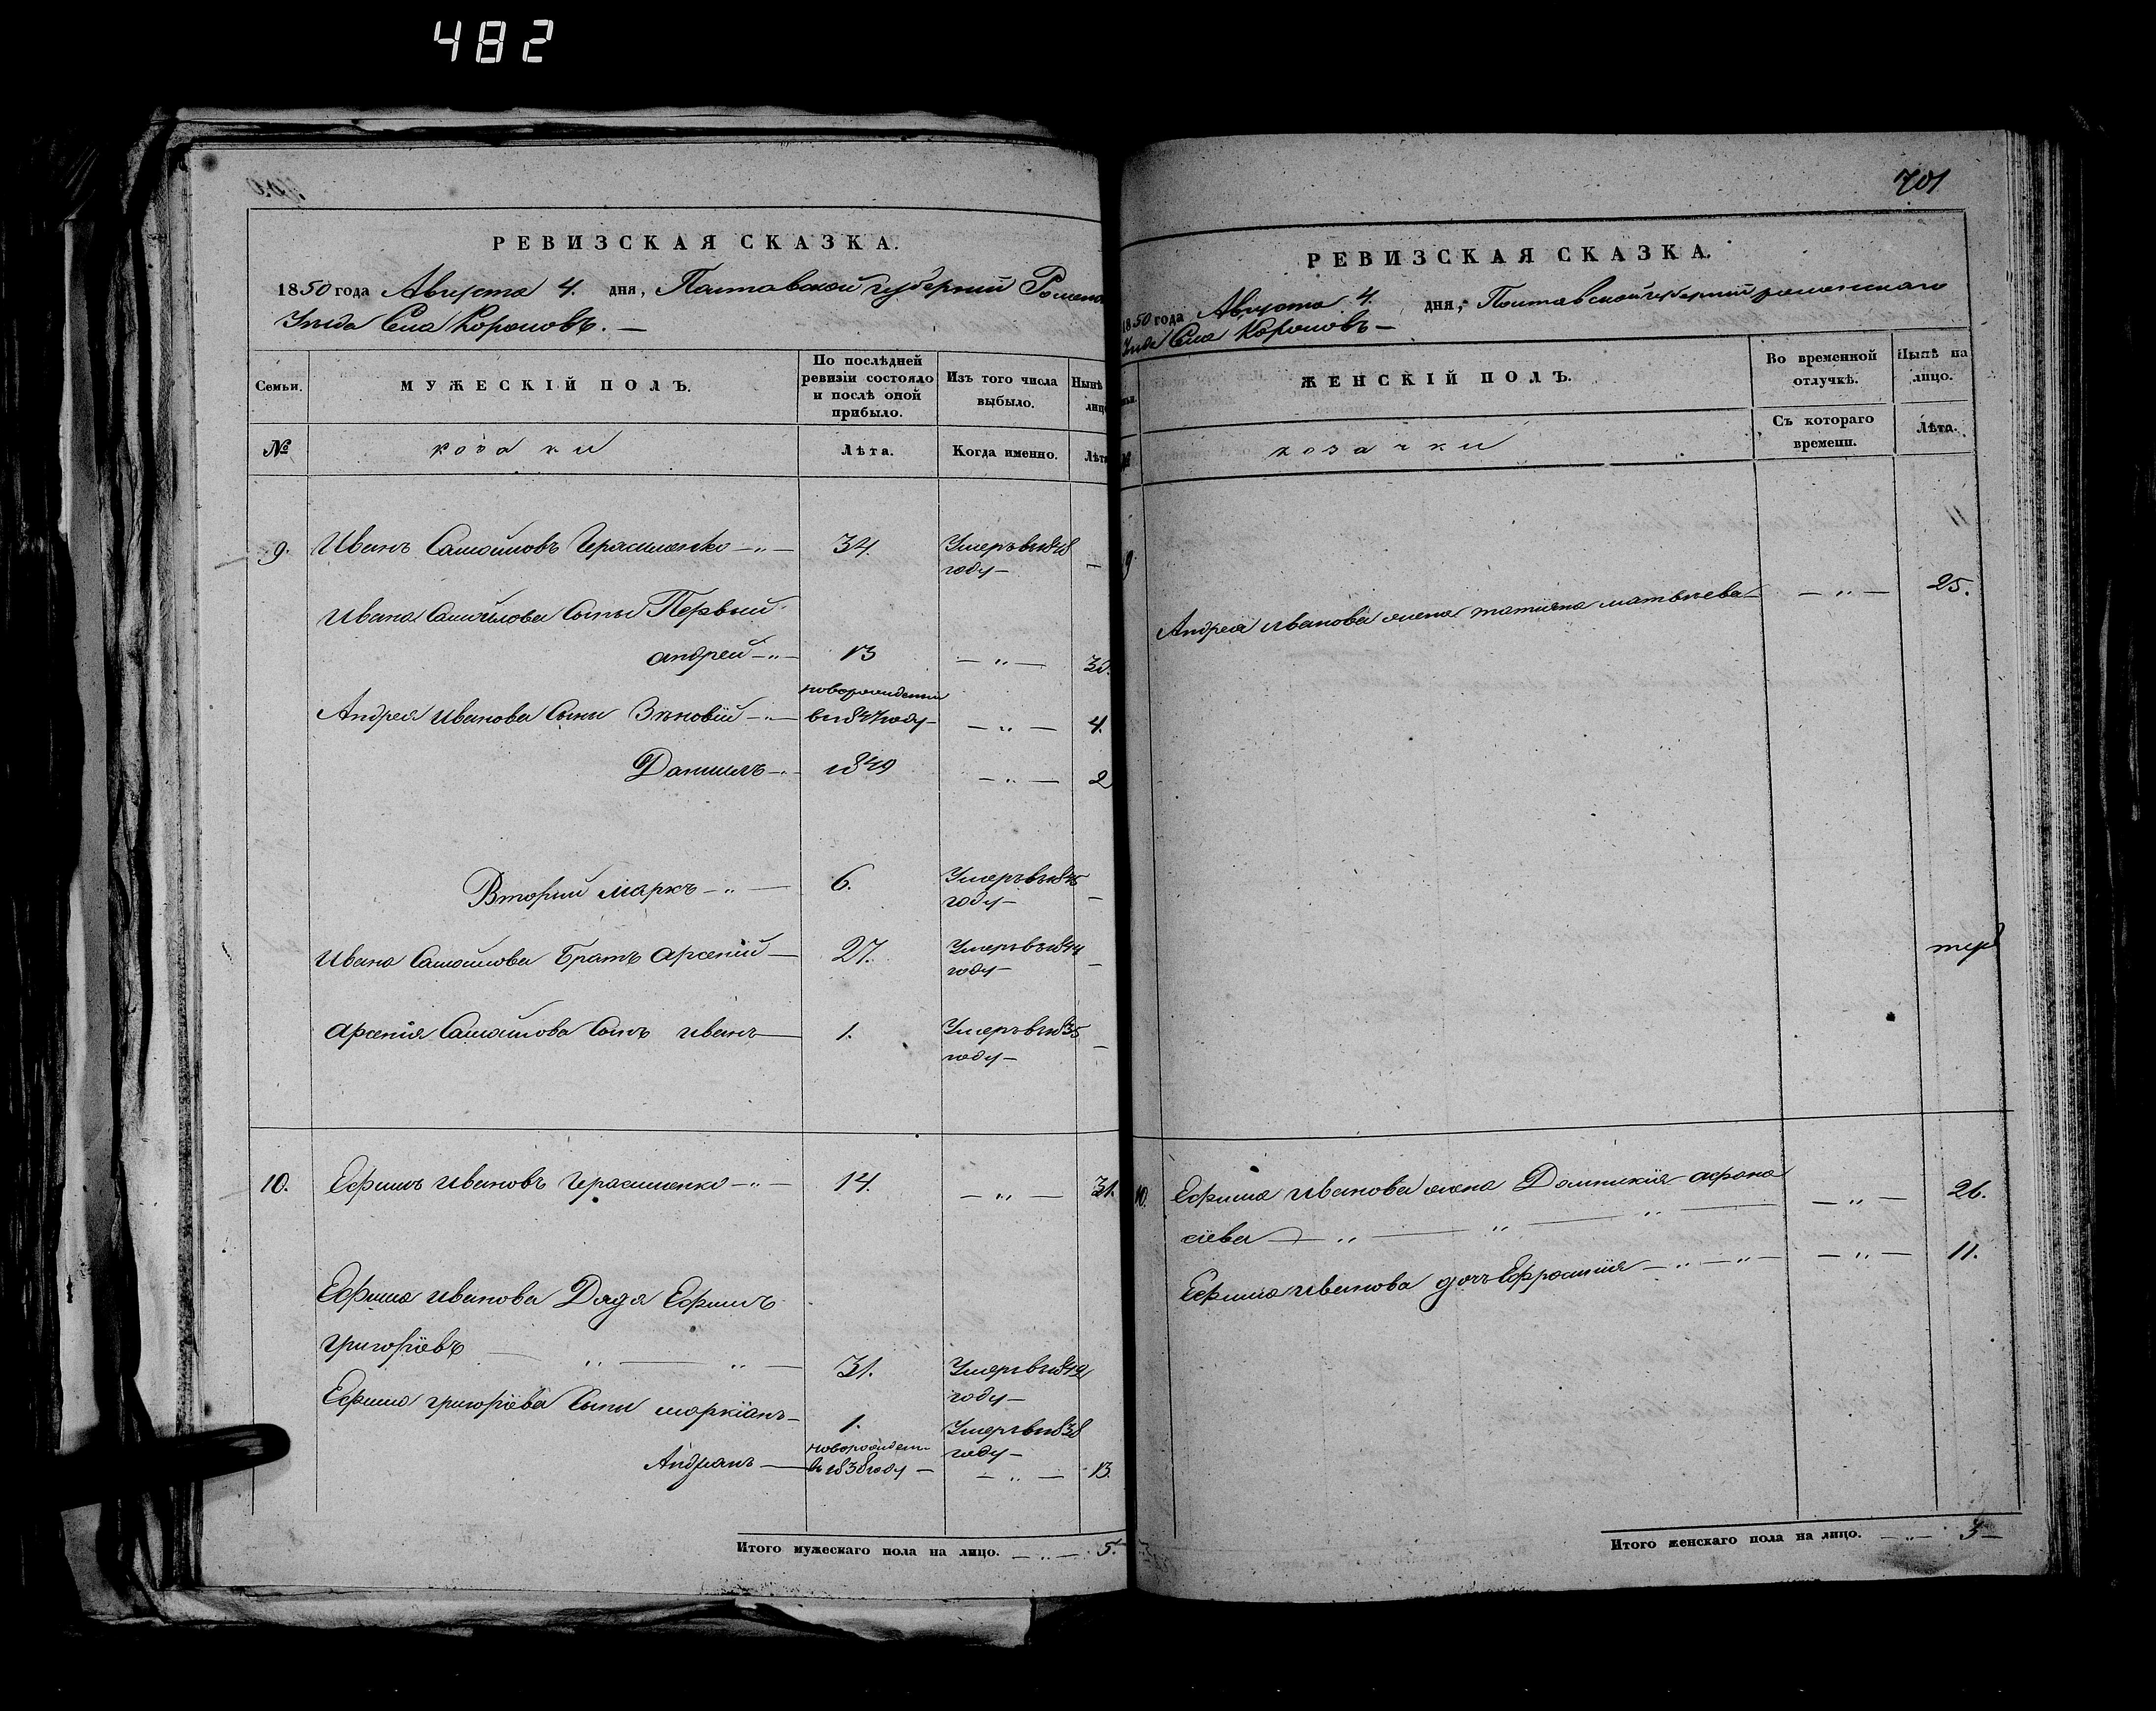 482
РЕВИЗСКАЯ СКАЗКА.
1850 года Августа 4. дня, Полтавской губерніи Роменс
Уезда Села Корововъ. —
Семьи.
МУЖЕСКІЙ ПОЛЪ.
По послѣдней ревизіи состояло и послѣ оной прибыло.
Изъ того числа выбыло.
Нынѣ лицо
№
козаки
Лѣта.
Когда именно.
Лѣта
9. Иванъ Самойловъ Герасименко — „ — 34. Умеръ в 1848 году — —
Ивана Самойлова Сыны Первый
андрей — „ — 13 — „ — 30.
Андрея Иванова Сыны Зѣновій — „ — новорожденны в 1847 году — — „ — 4.
Даніилъ — „ — 1849 — „ — 2
Вторый Маркъ — „ — 6. Умеръ в 1845 году — —
Ивана Самойлова Братъ Арсеній — 27. Умеръ в 1844 году — —
Арсенія Самойлова Сынъ Иванъ — 1. Умеръ в 1835 году — —
10. Ефимъ Ивановъ Герасименко — „ — 14. — „ — 31.
Ефима Иванова Дядя Ефимъ
Григоріевъ — „ — „ — 31. Умеръ в 1849 году —
Ефима Григоріева Сыны Маркіанъ — 1. Умеръ в 1838 году —
Андрианъ — новорожден в 1838 году — — „ — 13.
Итого мужескаго пола на лицо. — „ — 5.
701
РЕВИЗСКАЯ СКАЗКА.
1850 года Августа 4. дня, Полтавской губерніи роменскаго
Уезда Села Корововъ —
ЖЕНСКІЙ ПОЛЪ.
Во временной отлучкѣ.
Нынѣ на лицо.
№
козачки
Съ котораго времени.
Лѣта.
9
Андрея Иванова жена татияна матвѣева — — „ — 25.
10. Ефима Иванова жена Домникія афана
сіева — „ — „ — „ — — „ — 26.
Ефима Иванова дочь Ефросинія — „ — „ — — „ — 11.
Итого женскаго пола на лицо. — „ — 3 —